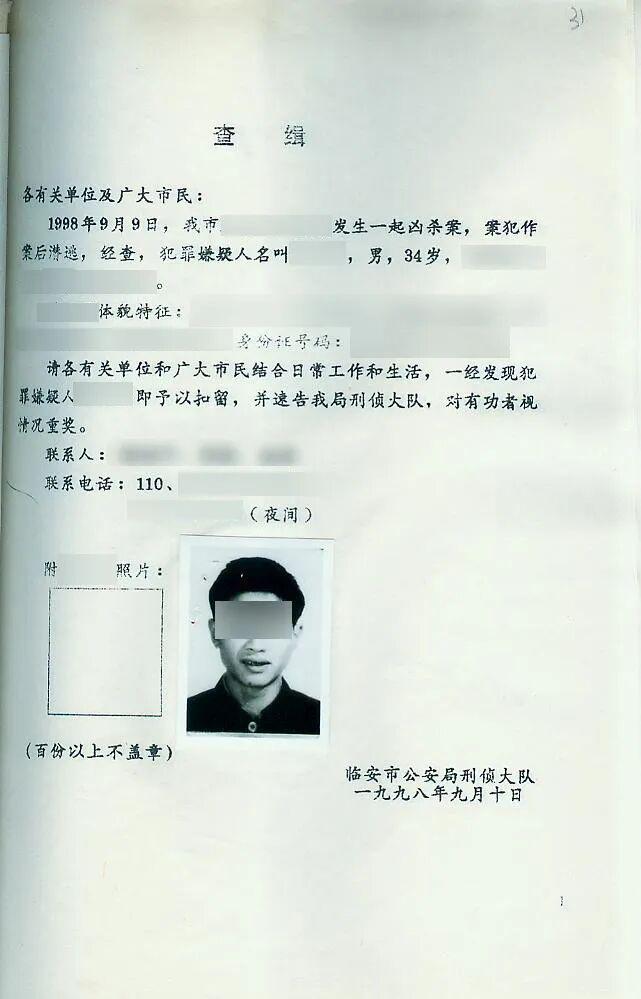 31
查 缉
各有关单位及广大市民：
1998年9月9日，我市 发生一起凶杀案，案犯作
案后潜逃，经查，犯罪嫌疑人名叫 ，男，34岁，
。
体貌特征：
身份证号码：
请各有关单位和广大市民结合日常工作和生活，一经发现犯
罪嫌疑人 即予以扣留，并速告我局刑侦大队，对有功者视
情况重奖。
联系人：
联系电话：110、
（夜间）
附 照片：
（百份以上不盖章）
临安市公安局刑侦大队
一九九八年九月十日